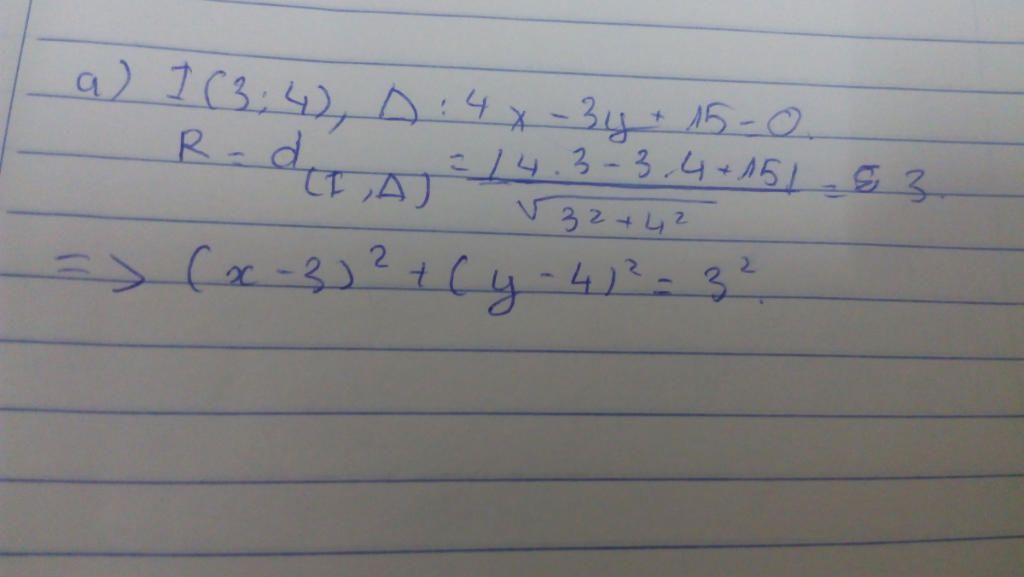 a) I(3;4), Δ: 4x - 3y + 15 = 0.
R = d(I,Δ) = |4.3 - 3.4 + 15| / √3² + 4² = 3.
=> (x - 3)² + (y - 4)² = 3².